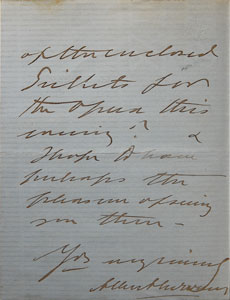 of the enclosed
Tickets for
the Opera this
evening? &
I hope to have
perhaps the
pleasure of seeing
you there —
Yrs